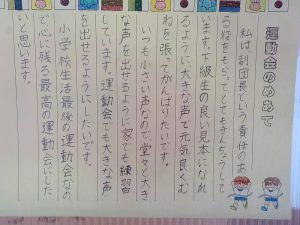 運動会のめあて
私は、副団長という責任のあ
る役をもらってとてもきんちょうして
います。下級生の良い見本になれ
るように大きな声で元気良くむ
ねを張ってがんばりたいです。
いつも小さい声なので、堂々と大き
な声を出せるように家でも練習
しています。運動会でも大きな声
を出せるようにしたいです。
小学校生活最後の運動会なの
で心に残る最高の運動会にした
いと思います。